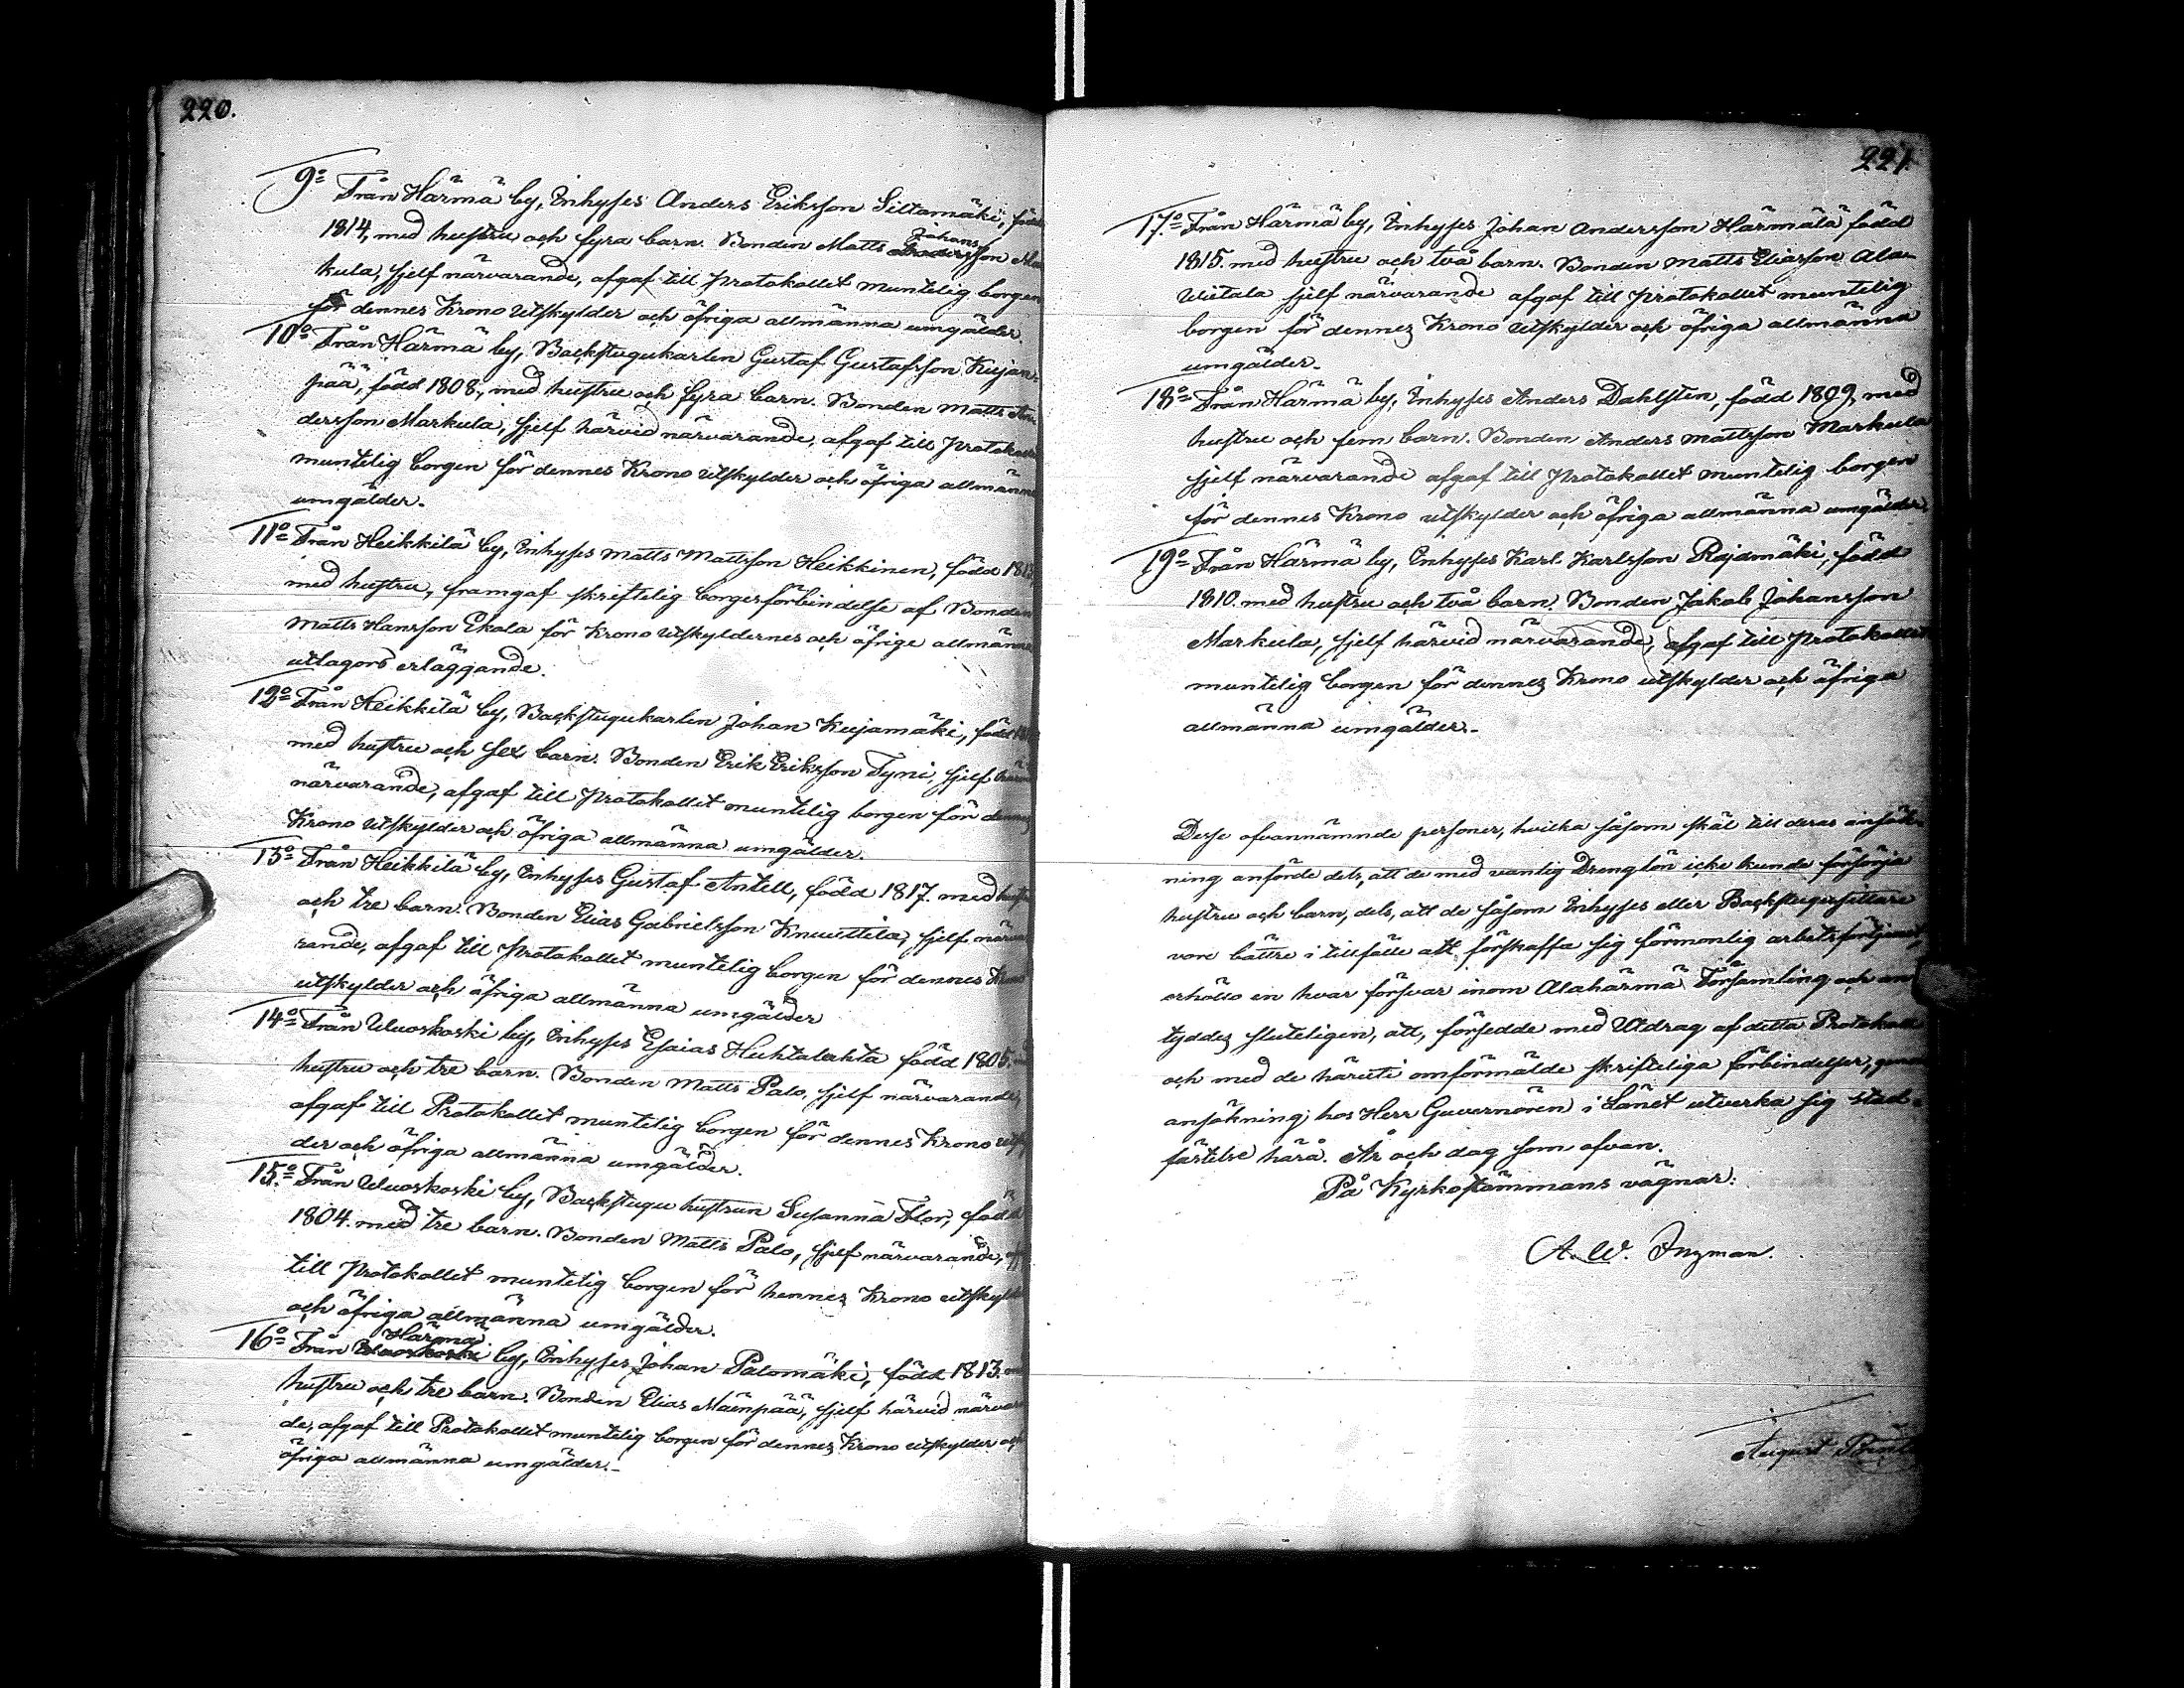 220.
9:o Från Härmä by, Inhyses Anders Eriksson Siltamäki, född
1814, med hustru och fyra barn. Bonden Matts Johansson Mar
kula, sjelf närvarande, afgaf till Protokollet muntelig borgen
för dennes Krono utskylder och öfriga allmänna umgälder.
10:o Från Härmä by, Backstugukarlen Gustaf Gustafsson Kujan-
pää, född 1808, med hustru och fyra barn. Bonden Matts An
dersson Markula, sjelf härvid närvarande, afgaf till Protokollet
muntelig borgen för dennes Krono utskylder och öfriga allmänna
umgälder.
11:o Från Heikkilä by, Inhyses Matts Mattsson Heikkinen, född 181
med hustru, framgaf skriftelig borgesförbindelse af Bonden
Matts Hansson Ekola för Krono utskyldernes och öfrige allmänna
utlagors erläggande.
12:o Från Heikkilä by, Backstugukarlen Johan Kujamäki, född
med hustru och sex barn. Bonden Erik Eriksson Tyni, sjelf härvid
närvarande, afgaf till Protokollet muntelig borgen för dennes
Krono utskylder och öfriga allmänna umgälder.
13:o Från Heikkilä by, Inhyses Gustaf Antell, född 1817. med hustru
och tre barn. Bonden Elias Gabrielsson Knuuttila, sjelf närva
rande, afgaf till Protokollet muntelig borgen för dennes Krono
utskylder och öfriga allmänna umgälder
14:o Från Wuoskoski by, Inhyses Esaias Huhtalahta född 1805. med
hustru och tre barn. Bonden Matts Palo, sjelf närvarande,
afgaf till Protokollet muntelig borgen för dennes Krono utskyl
der och öfriga allmänna umgälder.
15:o Från Wuoskoski by, Backstugu hustrun Susanna Flor, född
1804. med tre barn. Bonden Matts Palo, sjelf närvarande, afgaf
till Protokollet muntelig borgen för hennes Krono utskylder
och öfriga allmänna umgälder.
16:o Från Härmä by, Inhyses Johan Palomäki, född 1813. med
hustru och tre barn. Bonden Elias Mäenpää, sjelf härvid närvaran
de, afgaf till Protokollet muntelig borgen för dennes Krono utskylder och
öfriga allmänna umgälder.
221.
17:o Från Härmä by, Inhyses Johan Andersson Härmälä född
1815. med hustru och två barn. Bonden Matts Eliasson Ala-
Wiitala sjelf närvarande afgaf till Protokollet muntelig
borgen för dennes Krono utskylder och öfriga allmänna
umgälder.
18:o Från Härmä by, Inhyses Anders Dahlsten, född 1809, med
hustru och fem barn. Bonden Anders Mattsson Markula
sjelf närvarande afgaf till Protokollet muntelig borgen
för dennes Krono utskylder och öfriga allmänna umgälder.
19:o Från Härmä by, Inhyses Karl Karlsson Rajamäki, född
1810. med hustru och två barn. Bonden Jakob Johansson
Markula, sjelf härvid närvarande, afgaf till Protokollet
muntelig borgen för dennes Krono utskylder och öfriga
allmänna umgälder.
Desse ofvannämnde personer, hvilka såsom skäl till deras ansök-
ning anförde dels, att de med vanlig Drenglön icke kunde försörja
hustru och barn, dels, att de såsom Inhyses eller Backstugusittare
vore bättre i tillfälle att förskaffa sig förmonlig arbetsförtjenst,
erhöllo en hvar försvar inom Alahärmä Församling och an
tyddes sluteligen, att, försedde med Utdrag af detta Protokoll
och med de häruti omförmälde skrifteliga förbindelser, genom
ansökning hos Herr Guvernören i Länet utverka sig stad-
fästelse härå. År och dag som ofvan.
På Kyrkostämmans vägnar:
A. W. Ingman.
August